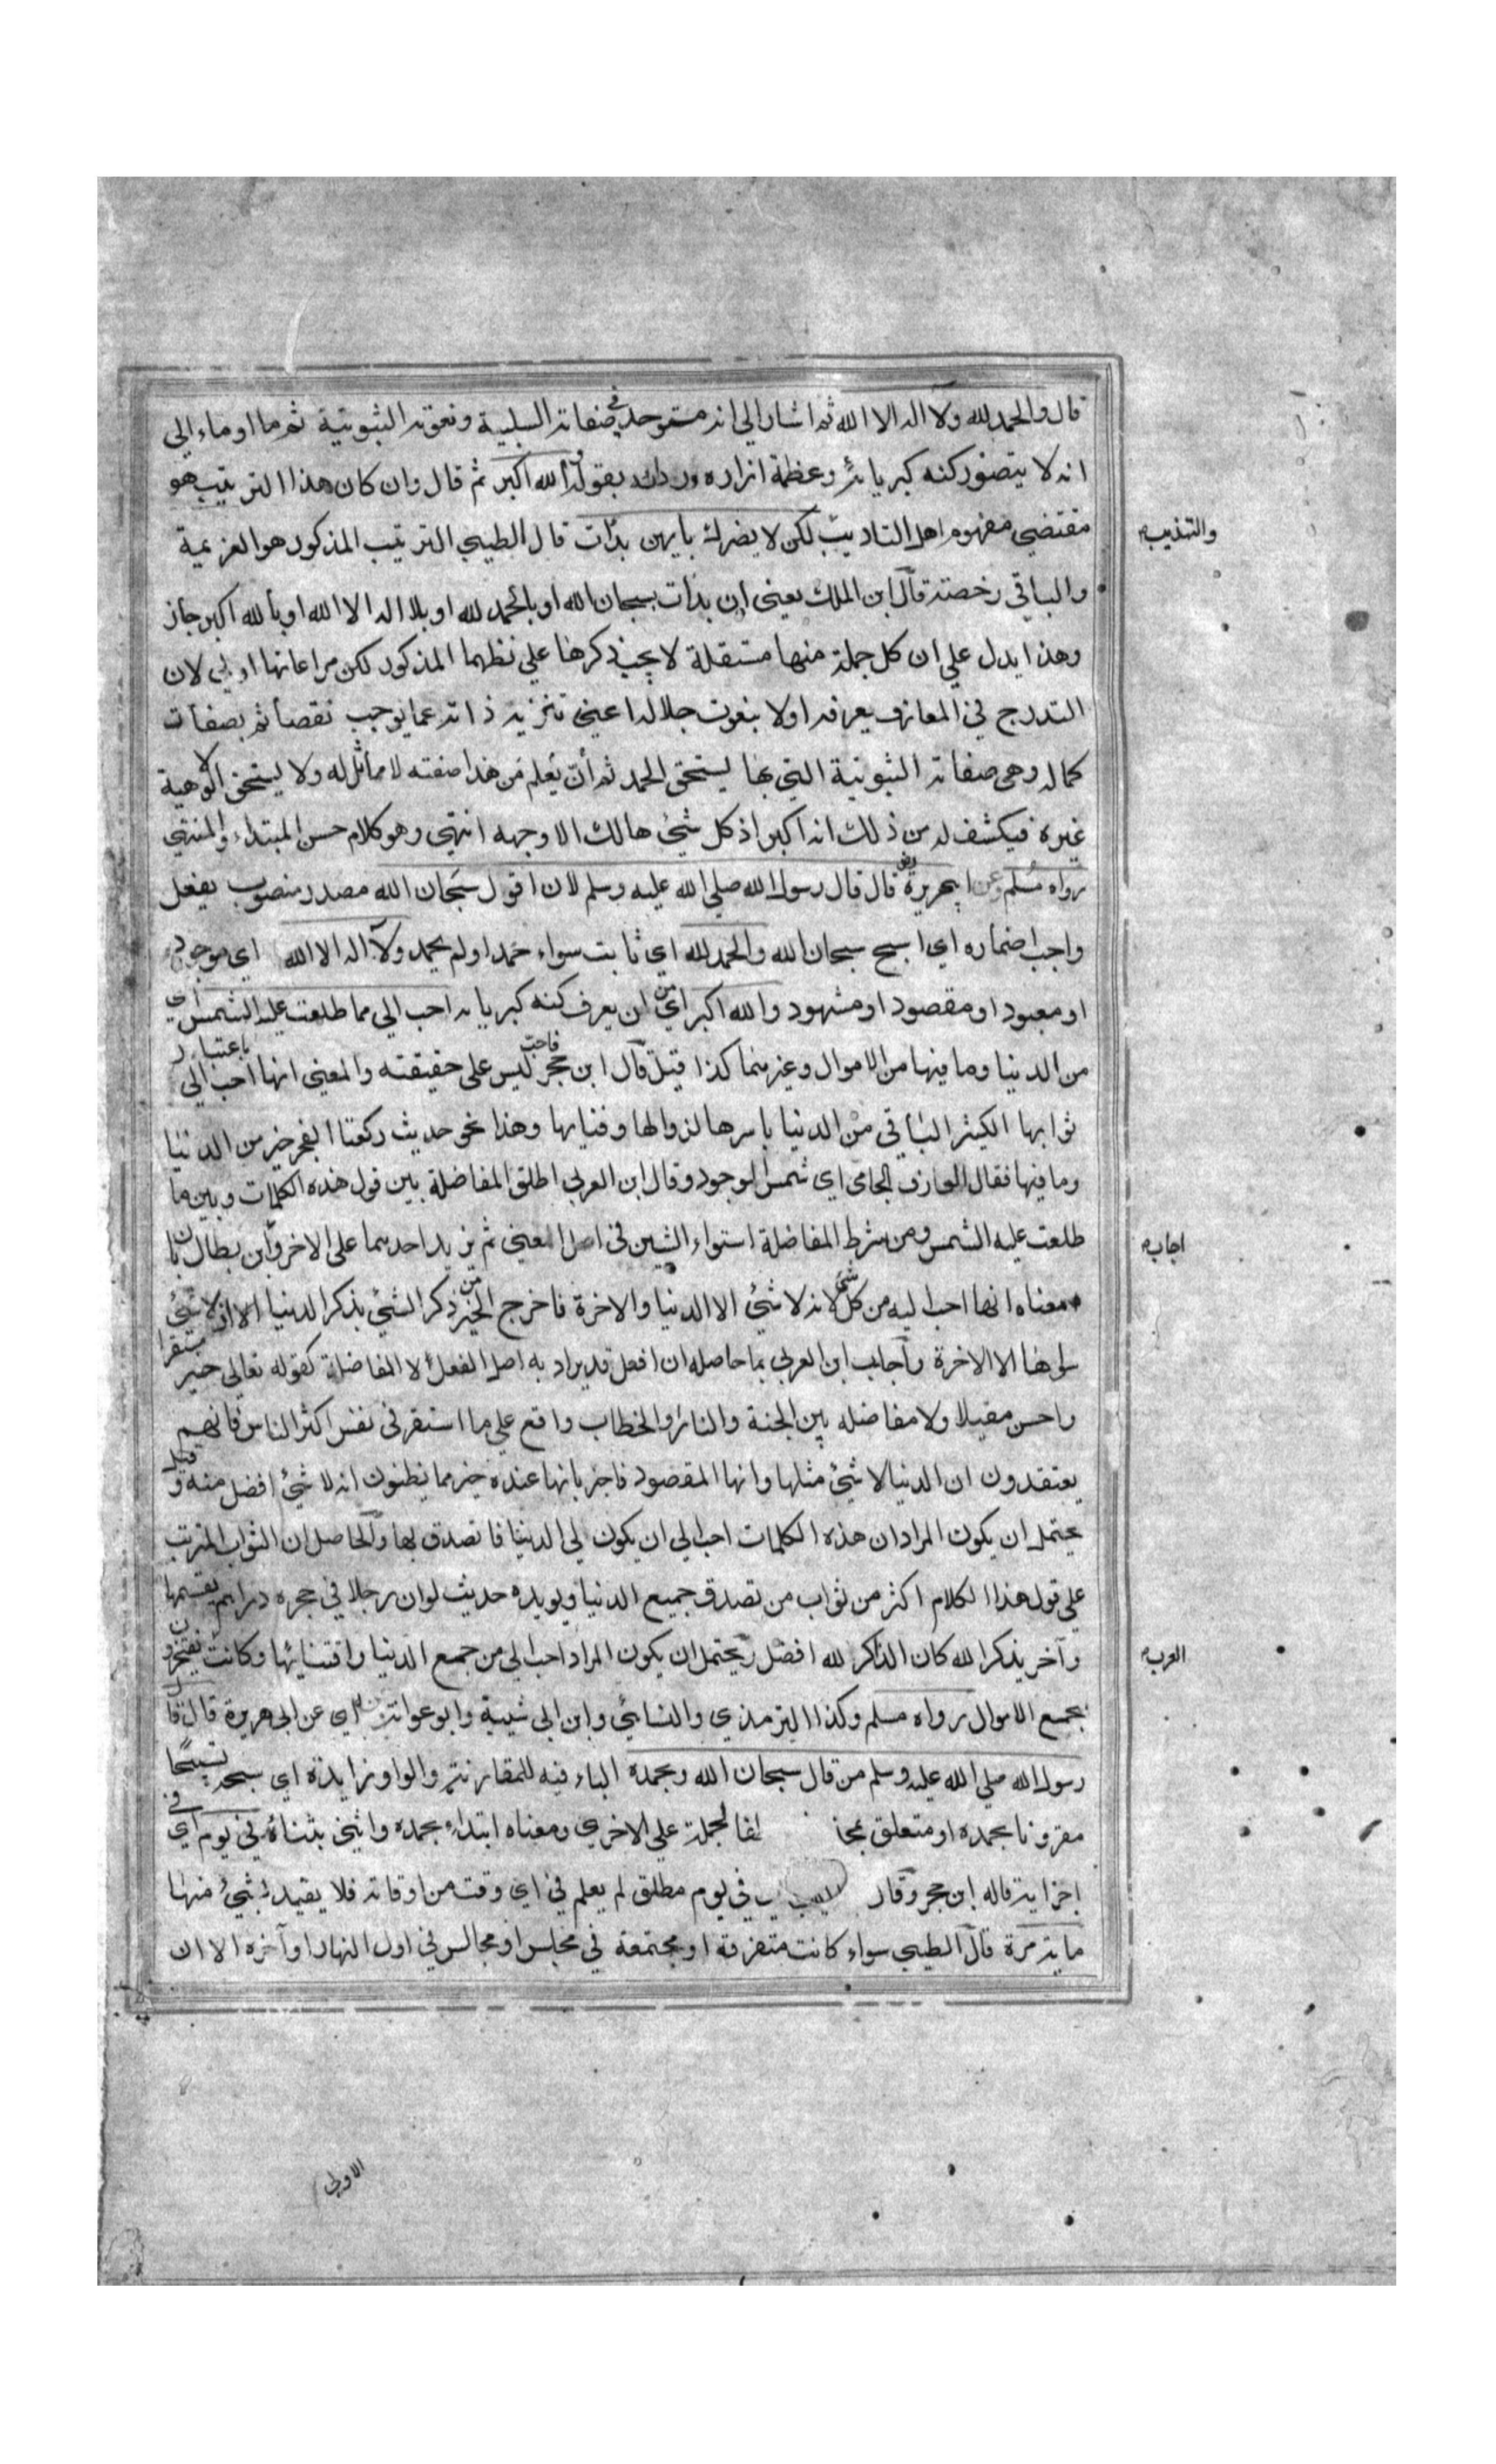 قال والحمد لله ولا اله الا الله ثم اشار الى انه متوحد في صفاته السلبية ونعوته الثبوتية ثم ما اوماء الي
انه لا يتصور كنه كبريائه وعظمة ازاره وردائه بقوله والله اكبر ثم قال وان كان هذا الترتيب هو
مقتضي مفهوم اهل التاديب لكن لا يضرك بايهن بدات قال الطيبي الترتيب المذكور هو العزيمة
والتهذيب
والباقي رخصة قال ابن الملك يعني ان بدات بسبحان الله او بالحمد لله او بلا اله الا الله او بالله اكبر جاز
وهذا يدل علي ان كل جملة منها مستقلة لا يجب ذكرها علي نظمها المذكور لكن مراعاتها اولي لان
التدرج في المعارف يعرفه اولا بنعوت جلاله اعني تنزيه ذاته عما يوجب نقصا ثم بصفات
كماله وهي صفاته الثبوتية التي بها يستحق الحمد ثم أن يعلم من هذا صفته لا مماثل له ولا يستحق الالوهية
غيره فيكشف له من ذلك انه اكبر اذ كل شيئ هالك الا وجهه انتهي وهو كلام حسن المبتداء والمنتهي
رواه مسلم وعن ابي هريرة رض قال قال رسول الله صلي الله عليه وسلم لان اقول سبحان الله مصدر منصوب بفعل
واجب اضماره اي اسبح سبحان الله والحمد لله اي ثابت سواء حمد او لم يحمد ولا اله الا الله اي موجود
او معبود او مقصود او مشهود والله اكبر اي من ان يعرف كنه كبريائه احب الي مما طلعت عليه الشمس اي
من الدنيا وما فيها من الاموال وغيرهما كذا قيل قال ابن حجر فاحب ليس على حقيقته والمعني انها احب الي باعتبار
ثوابها الكثير الباقي من الدنيا باسرها لزوالها وفنايها وهذا نحو حديث ركعتا الفجر خير من الدنيا
وما فيها فقال العارف الجامي اي شمس الوجود وقال ابن العربي اطلق المفاضلة بين قول هذه الكلمات وبين ما
طلعت عليه الشمس ومن شرط المفاضلة استواء الشيين في اصل المعني ثم يزيد احدهما على الاخر وابن بطال بان
اجاب
معناه انها احب اليه من كل شئ لانه لا شيئ الا الدنيا والاخرة فاخرج الخير من ذكر الشيئ بذكر الدنيا الا انه لا شيئ
سواها الا الاخرة وأجاب ابن العربي بما حاصله ان افعل قد يراد به اصل الفعل لا المفاضلة كقوله تعالى خير مستقرا
واحسن مقيلا ولا مفاضله بين الجنة والنار او الخطاب واقع علي ما استقر في نفس اكثر الناس فانهم
يعتقدون ان الدنيا لا شيئ مثلها وانها المقصود فاخبر بانها عنده خير مما يظنون انه لا شيئ افضل منه وقيل
يحتمل ان يكون المراد ان هذه الكلمات احب الي ان يكون لي الدنيا فاتصدق بها والحاصل ان الثواب المترتب
علي قول هذا الكلام اكثر من ثواب من تصدق جميع الدنيا ويويده حديث لو ان رجلا في حجره دراهم يقسمها
وآخر يذكر الله كان الذاكر لله افضل ويحتمل ان يكون المراد احب الي من جمع الدنيا واقتنائها وكانت يفتخرون
العرب
بجمع الاموال رواه مسلم وكذا الترمذي والنسائي وابن ابي شيبة وابو عوانة وعنه اي عن ابي هريرة قال قال
رسول الله صلي الله عليه وسلم من قال سبحان الله وبحمده الباء فيه للمقارنة والواو زايدة اي سبحه تسبيحا
مقرونا بحمده او متعلق بمحذ لفا لجملة علي الاخري ومعناه ابتداء بحمده واثني بثنائه في يوم اي في
اجزايه قاله ابن حجر وقال الطيبي اي في يوم مطلق لم يعلم في اي وقت من اوقاته فلا يقيد بشيئ منها
ماية مرة قال الطيبي سواء كانت متفرقة او مجتمعة في مجلس او مجالس في اول النهار او آخره الا ان
الاولي